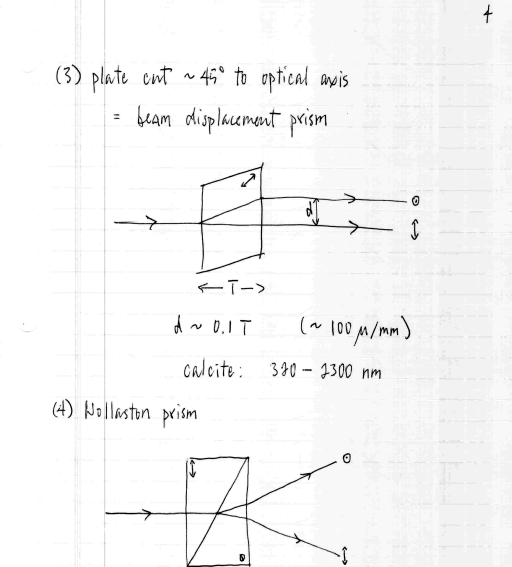 4
(3) plate cut ~ 45° to optical axis
= beam displacement prism
d
← T →
d ~ 0.1 T (~ 100 μ/mm)
calcite: 320 - 2300 nm
(4) Wollaston prism